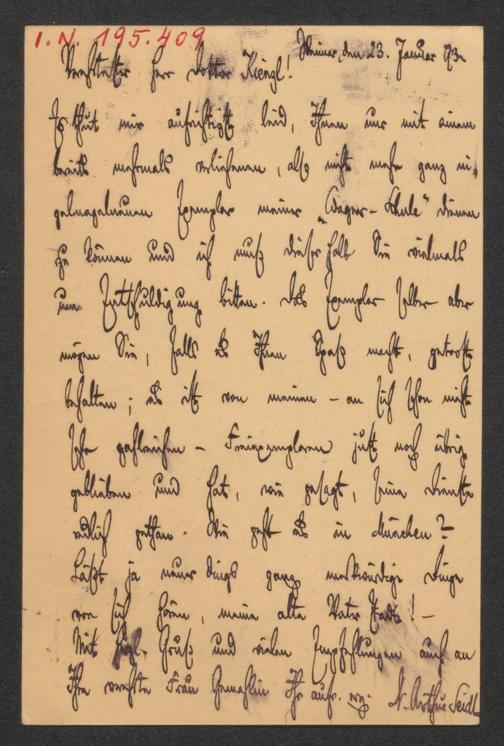 I. N. 195.409
Weimar, den 23. Januar 93.
Verehrtester Herr Doktor Kienzl!
Es thut mir aufrichtigst leid, Ihnen nur mit einem
bereits mehrmals verliehenen, also nicht mehr ganz
nagelneuen Exemplar meiner „Wagner-Schule" dienen
zu können und ich muß dieserhalb Sie vielmals
um Entschuldigung bitten. Das Exemplar selber aber
mögen Sie, falls es Ihnen Spaß macht, getrost
behalten; es ist von meinen – an sich schon nicht
sehr zahlreichen – Freiexemplaren just noch übrig
geblieben und hat, wie gesagt, seine Dienste
redlich gethan. Wie geht es in München?
Läßt ja neuerdings ganz merkwürdige Dinge
von sich hören, meine alte Vaterstadt! –
Mit Gruß und vielen Empfehlungen auch an
Ihre verehrte Frau Gemahlin Ihr aufr. erg. Dr. Arthur Seidl